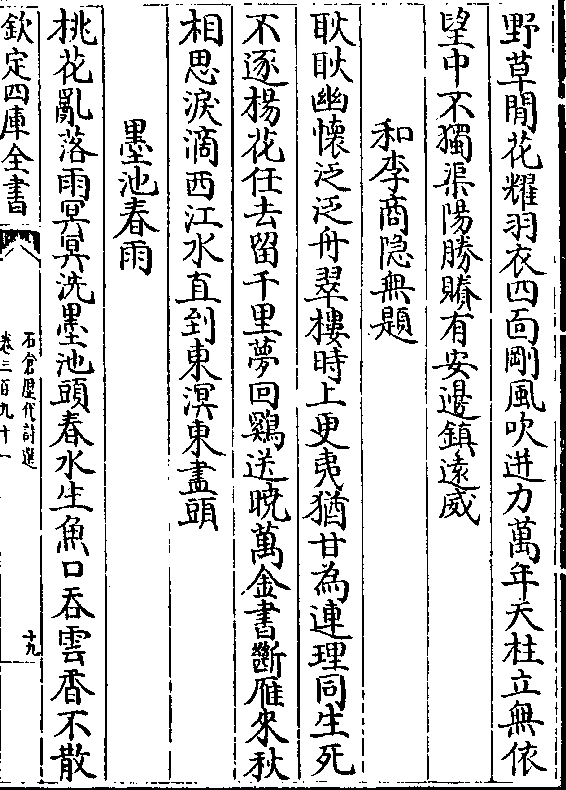 野草閒花耀羽衣四面剛風吹进力萬年天柱立無依
望中不獨渠陽勝賸有安邊鎮遠威
和李商隐無題
耿耿幽懷泛泛舟翠樓時上更夷猶甘為連理同生死
不逐楊花任去留千里夢回鷄送曉萬金書斷雁來秋
相思淚滴西江水直到東溟東盡頭
墨池春雨
桃花亂落雨冥冥洗墨池頭春水生魚口吞雲香不散
欽定四庫全書
石倉歷代詩選
卷三百九十一
十九